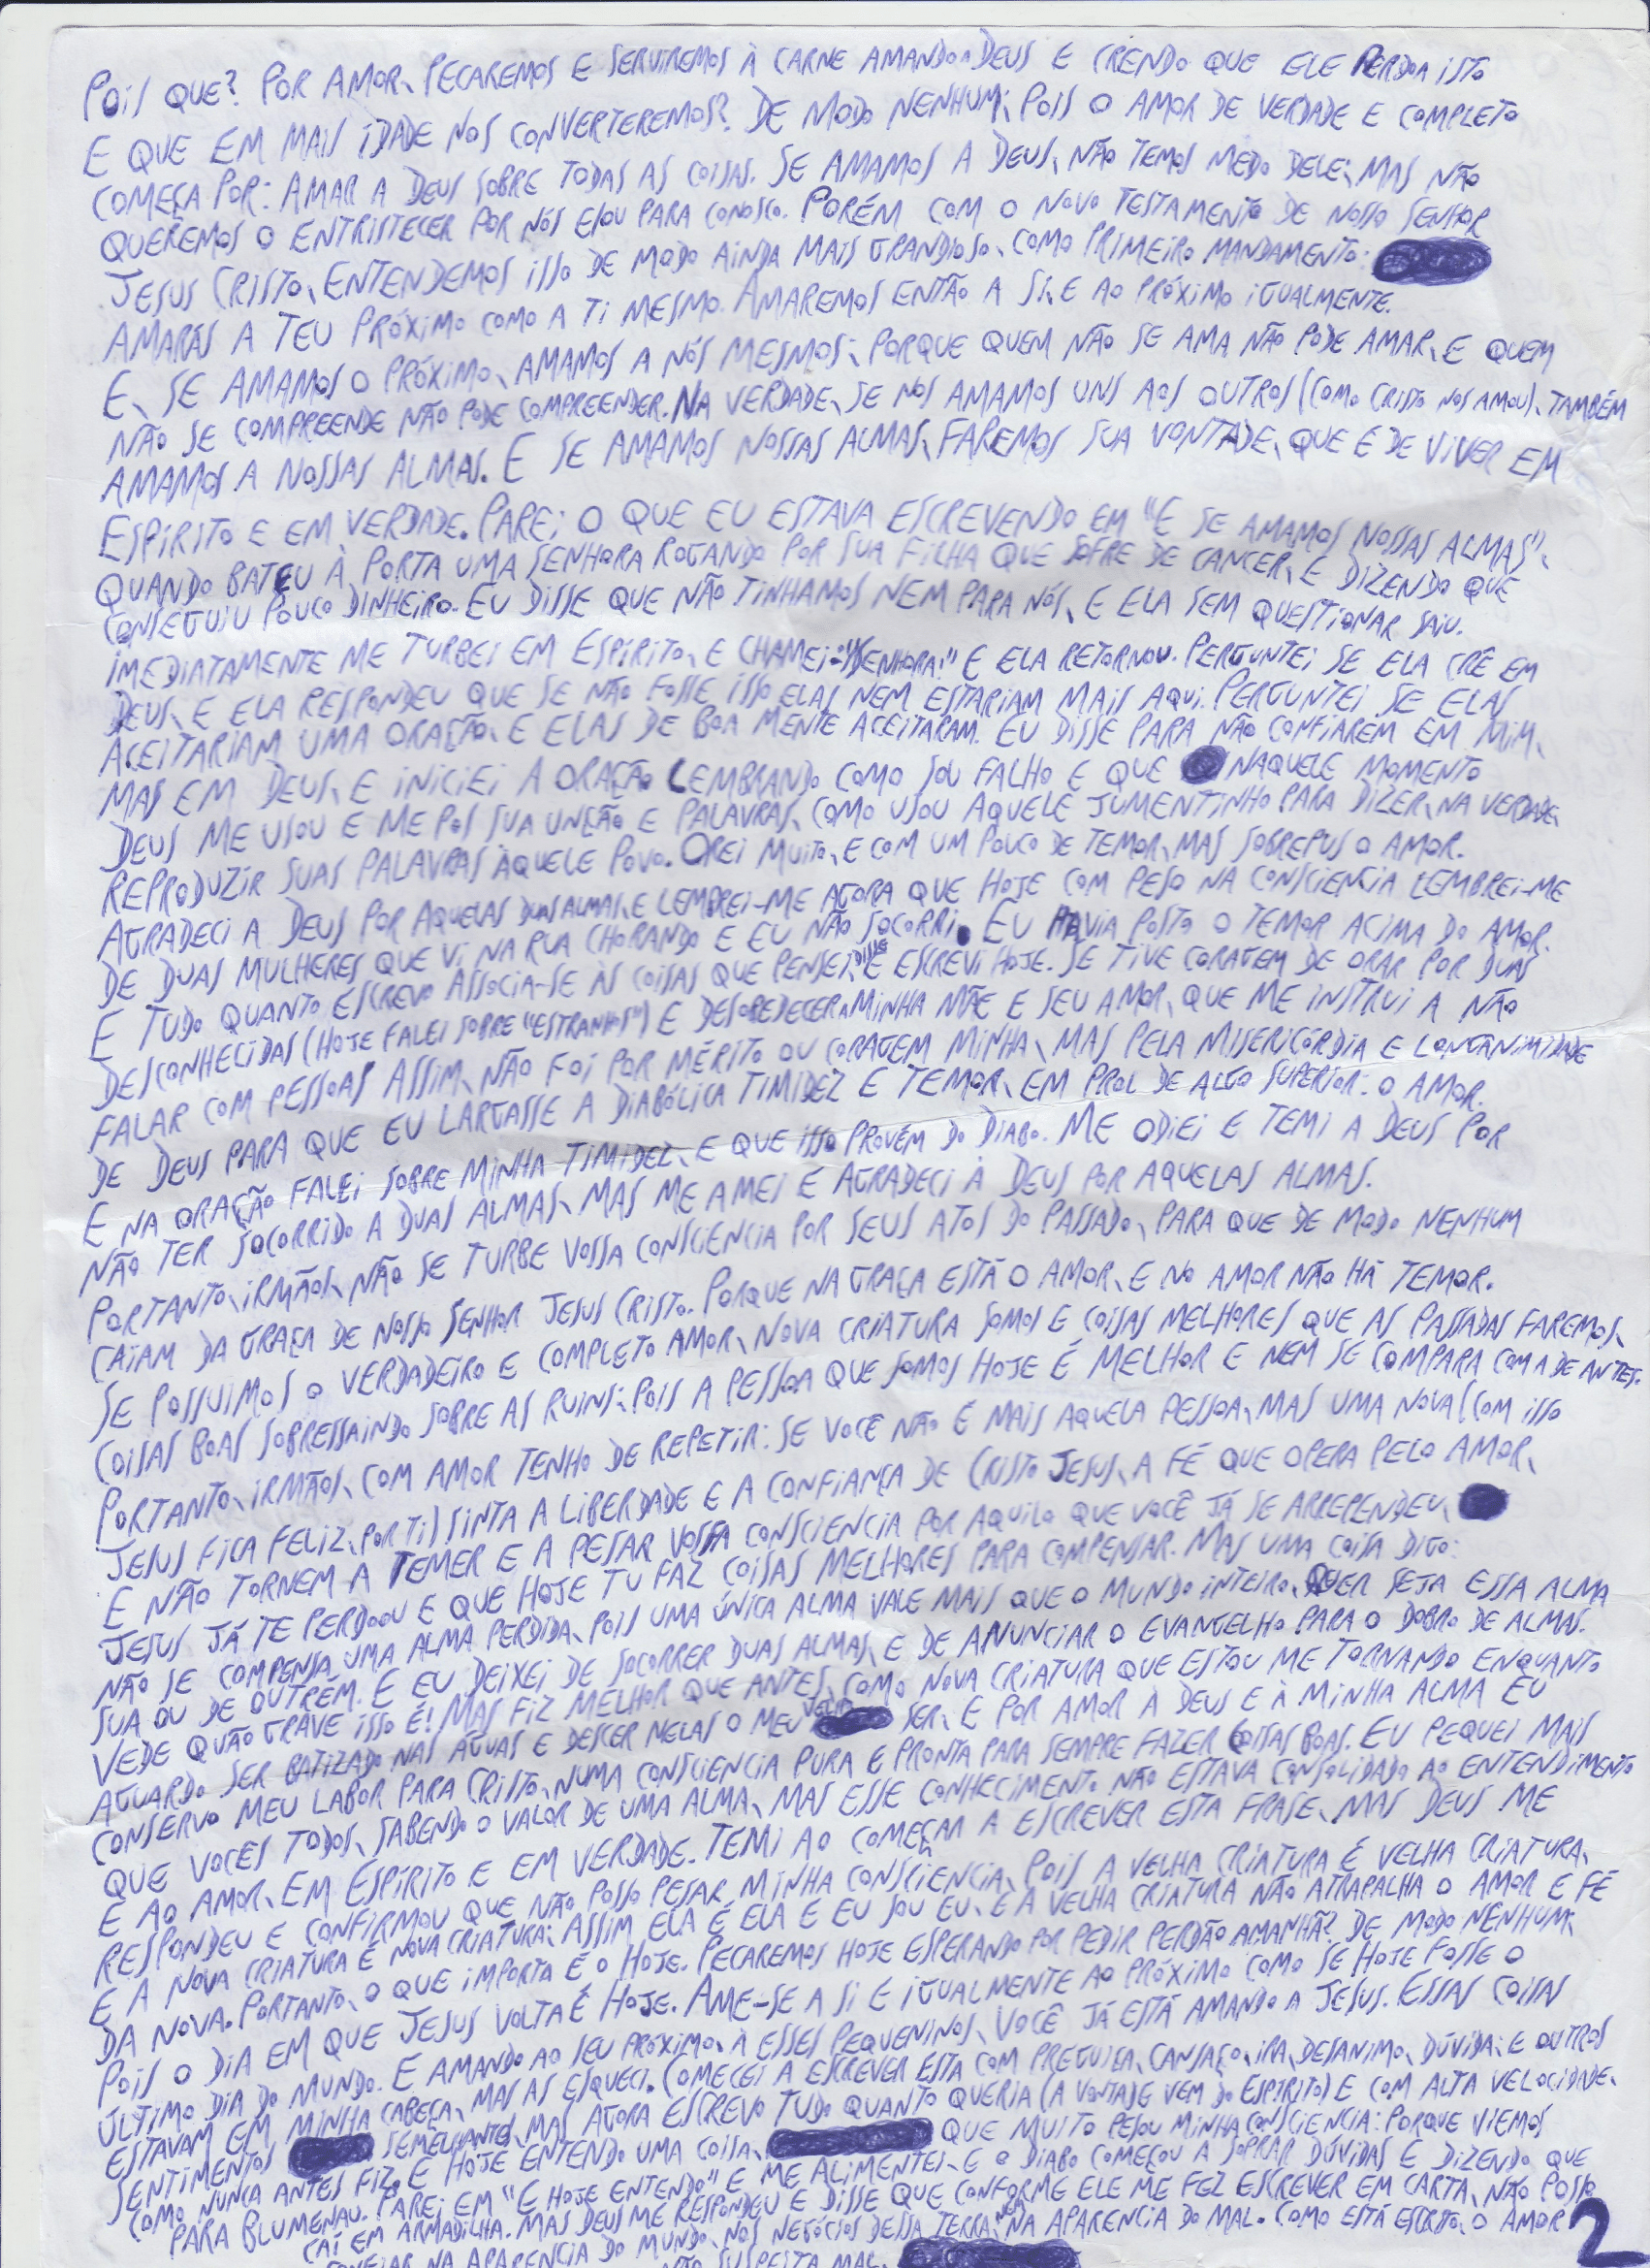 POIS QUE? POR AMOR, PECAREMOS E SERVIREMOS À CARNE AMANDO A DEUS E CRENDO QUE ELE PERDOA ISTO
E QUE EM MAIS IDADE NOS CONVERTEREMOS? DE MODO NENHUM; POIS O AMOR DE VERDADE E COMPLETO
COMEÇA POR: AMAR A DEUS SOBRE TODAS AS COISAS. SE AMAMOS A DEUS, NÃO TEMOS MEDO DELE; MAS NÃO
QUEREMOS O ENTRISTECER POR NÓS E/OU PARA CONOSCO. PORÉM COM O NOVO TESTAMENTO DE NOSSO SENHOR
JESUS CRISTO, ENTENDEMOS ISSO DE MODO AINDA MAIS GRANDIOSO, COMO PRIMEIRO MANDAMENTO:
AMARÁS A TEU PRÓXIMO COMO A TI MESMO. AMAREMOS ENTÃO A SI, E AO PRÓXIMO IGUALMENTE.
E, SE AMAMOS O PRÓXIMO, AMAMOS A NÓS MESMOS; PORQUE QUEM NÃO SE AMA NÃO PODE AMAR, E QUEM
NÃO SE COMPREENDE NÃO PODE COMPREENDER. NA VERDADE, SE NOS AMAMOS UNS AOS OUTROS (COMO CRISTO NOS AMOU), TAMBÉM
AMAMOS A NOSSAS ALMAS. E SE AMAMOS NOSSAS ALMAS, FAREMOS SUA VONTADE, QUE É DE VIVER EM
ESPÍRITO E EM VERDADE. PAREI O QUE EU ESTAVA ESCREVENDO EM "E SE AMAMOS NOSSAS ALMAS",
QUANDO BATEU À PORTA UMA SENHORA ROGANDO POR SUA FILHA QUE SOFRE DE CANCER, E DIZENDO QUE
CONSEGUIU POUCO DINHEIRO. EU DISSE QUE NÃO TINHAMOS NEM PARA NÓS, E ELA SEM QUESTIONAR SAIU.
IMEDIATAMENTE ME TURBEI EM ESPÍRITO, E CHAMEI: "SENHORA!" E ELA RETORNOU. PERGUNTEI SE ELA CRÊ EM
DEUS, E ELA RESPONDEU QUE SE NÃO FOSSE ISSO ELAS NEM ESTARIAM MAIS AQUI. PERGUNTEI SE ELAS
ACEITARIAM UMA ORAÇÃO, E ELAS DE BOA MENTE ACEITARAM. EU DISSE PARA NÃO CONFIAREM EM MIM,
MAS EM DEUS, E INICIEI A ORAÇÃO LEMBRANDO COMO SOU FALHO E QUE NAQUELE MOMENTO
DEUS ME USOU E ME PÔS SUA UNÇÃO E PALAVRAS, COMO USOU AQUELE JUMENTINHO PARA DIZER, NA VERDADE,
REPRODUZIR SUAS PALAVRAS ÀQUELE POVO. OREI MUITO, E COM UM POUCO DE TEMOR, MAS SOBREPUS O AMOR.
AGRADECI A DEUS POR AQUELAS DUAS ALMAS, E LEMBREI-ME AGORA QUE HOJE COM PESO NA CONSCIENCIA LEMBREI-ME
DE DUAS MULHERES QUE VI NA RUA CHORANDO E EU NÃO SOCORRI. EU HAVIA POSTO O TEMOR ACIMA DO AMOR.
E TUDO QUANTO ESCREVO ASSOCIA-SE ÀS COISAS QUE PENSEI, DISSE E ESCREVI HOJE. SE TIVE CORAGEM DE ORAR POR DUAS
DESCONHECIDAS (HOJE FALEI SOBRE "ESTRANHOS") E DESOBEDECER A MINHA MÃE E SEU AMOR, QUE ME INSTRUI A NÃO
FALAR COM PESSOAS ASSIM, NÃO FOI POR MÉRITO OU CORAGEM MINHA, MAS PELA MISERICÓRDIA E LONGANIMIDADE
DE DEUS PARA QUE EU LARGASSE A DIABÓLICA TIMIDEZ E TEMOR, EM PROL DE ALGO SUPERIOR: O AMOR.
E NA ORAÇÃO FALEI SOBRE MINHA TIMIDEZ, E QUE ISSO PROVÉM DO DIABO. ME ODIEI E TEMI A DEUS POR
NÃO TER SOCORRIDO A DUAS ALMAS, MAS ME AMEI E AGRADECI À DEUS POR AQUELAS ALMAS.
PORTANTO, IRMÃOS, NÃO SE TURBE VOSSA CONSCIENCIA POR SEUS ATOS DO PASSADO, PARA QUE DE MODO NENHUM
CAIAM DA GRAÇA DE NOSSO SENHOR JESUS CRISTO. PORQUE NA GRAÇA ESTÁ O AMOR, E NO AMOR NÃO HÁ TEMOR.
SE POSSUIMOS O VERDADEIRO E COMPLETO AMOR, NOVA CRIATURA SOMOS E COISAS MELHORES QUE AS PASSADAS FAREMOS,
COISAS BOAS SOBRESSAINDO SOBRE AS RUINS; POIS A PESSOA QUE SOMOS HOJE É MELHOR E NEM SE COMPARA COM A DE ANTES.
PORTANTO, IRMÃOS, COM AMOR TENHO DE REPETIR: SE VOCÊ NÃO É MAIS AQUELA PESSOA, MAS UMA NOVA (COM ISSO
JESUS FICA FELIZ, POR TI) SINTA A LIBERDADE E A CONFIANÇA DE CRISTO JESUS, A FÉ QUE OPERA PELO AMOR,
E NÃO TORNEM A TEMER E A PESAR VOSSA CONSCIENCIA POR AQUILO QUE VOCÊ JÁ SE ARREPENDEU,
JESUS JÁ TE PERDOOU E QUE HOJE TU FAZ COISAS MELHORES PARA COMPENSAR. MAS UMA COISA DIGO:
NÃO SE COMPENSA UMA ALMA PERDIDA, POIS UMA ÚNICA ALMA VALE MAIS QUE O MUNDO INTEIRO, QUER SEJA ESSA ALMA
SUA OU DE OUTREM. E EU DEIXEI DE SOCORRER DUAS ALMAS, E DE ANUNCIAR O EVANGELHO PARA O DOBRO DE ALMAS.
VEDE QUÃO GRAVE ISSO É! MAS FIZ MELHOR QUE ANTES, COMO NOVA CRIATURA QUE ESTOU ME TORNANDO ENQUANTO
AGUARDO SER BATIZADO NAS ÁGUAS E DESCER NELAS O MEU VELHO SER, E POR AMOR À DEUS E À MINHA ALMA EU
CONSERVO MEU LABOR PARA CRISTO, NUMA CONSCIENCIA PURA E PRONTA PARA SEMPRE FAZER COISAS BOAS. EU PEQUEI MAIS
QUE VOCÊS TODOS, SABENDO O VALOR DE UMA ALMA, MAS ESSE CONHECIMENTO NÃO ESTAVA CONSOLIDADO AO ENTENDIMENTO
E AO AMOR, EM ESPÍRITO E EM VERDADE. TEMI AO COMEÇAR A ESCREVER ESTA FRASE, MAS DEUS ME
RESPONDEU E CONFIRMOU QUE NÃO POSSO PESAR MINHA CONSCIENCIA, POIS A VELHA CRIATURA É VELHA CRIATURA,
E A NOVA CRIATURA É NOVA CRIATURA; ASSIM ELA É ELA E EU SOU EU, E A VELHA CRIATURA NÃO ATRAPALHA O AMOR E FÉ
DA NOVA. PORTANTO, O QUE IMPORTA É O HOJE. PECAREMOS HOJE ESPERANDO POR PEDIR PERDÃO AMANHÃ? DE MODO NENHUM;
POIS O DIA EM QUE JESUS VOLTA É HOJE. AME-SE A SI E IGUALMENTE AO PRÓXIMO COMO SE HOJE FOSSE O
ÚLTIMO DIA DO MUNDO. E AMANDO AO SEU PRÓXIMO, À ESSES PEQUENINOS, VOCÊ JÁ ESTÁ AMANDO A JESUS. ESSAS COISAS
ESTAVAM EM MINHA CABEÇA, MAS AS ESQUECI. COMECEI A ESCREVER ESTA COM PREGUIÇA, CANSAÇO, IRA, DESANIMO, DÚVIDA; E OUTROS
SENTIMENTOS SEMELHANTES, MAS AGORA ESCREVO TUDO QUANTO QUERIA (A VONTADE VEM DO ESPIRITO) E COM ALTA VELOCIDADE,
COMO NUNCA ANTES FIZ. E HOJE ENTENDO UMA COISA, QUE MUITO PESOU MINHA CONSCIENCIA: PORQUE VIEMOS
PARA BLUMENAU. PAREI EM "E HOJE ENTENDO" E ME ALIMENTEI, E O DIABO COMEÇOU A SOPRAR DÚVIDAS E DIZENDO QUE
CAÍ EM ARMADILHA. MAS DEUS ME RESPONDEU E DISSE QUE CONFORME ELE ME FEZ ESCREVER EM CARTA, NÃO POSSO
CONFIAR NA APARENCIA DO MUNDO, NOS NEGÓCIOS DESSA TERRA, NEM NA APARENCIA DO MAL. COMO ESTÁ ESCRITO, O AMOR
NÃO SUSPEITA MAL.
2